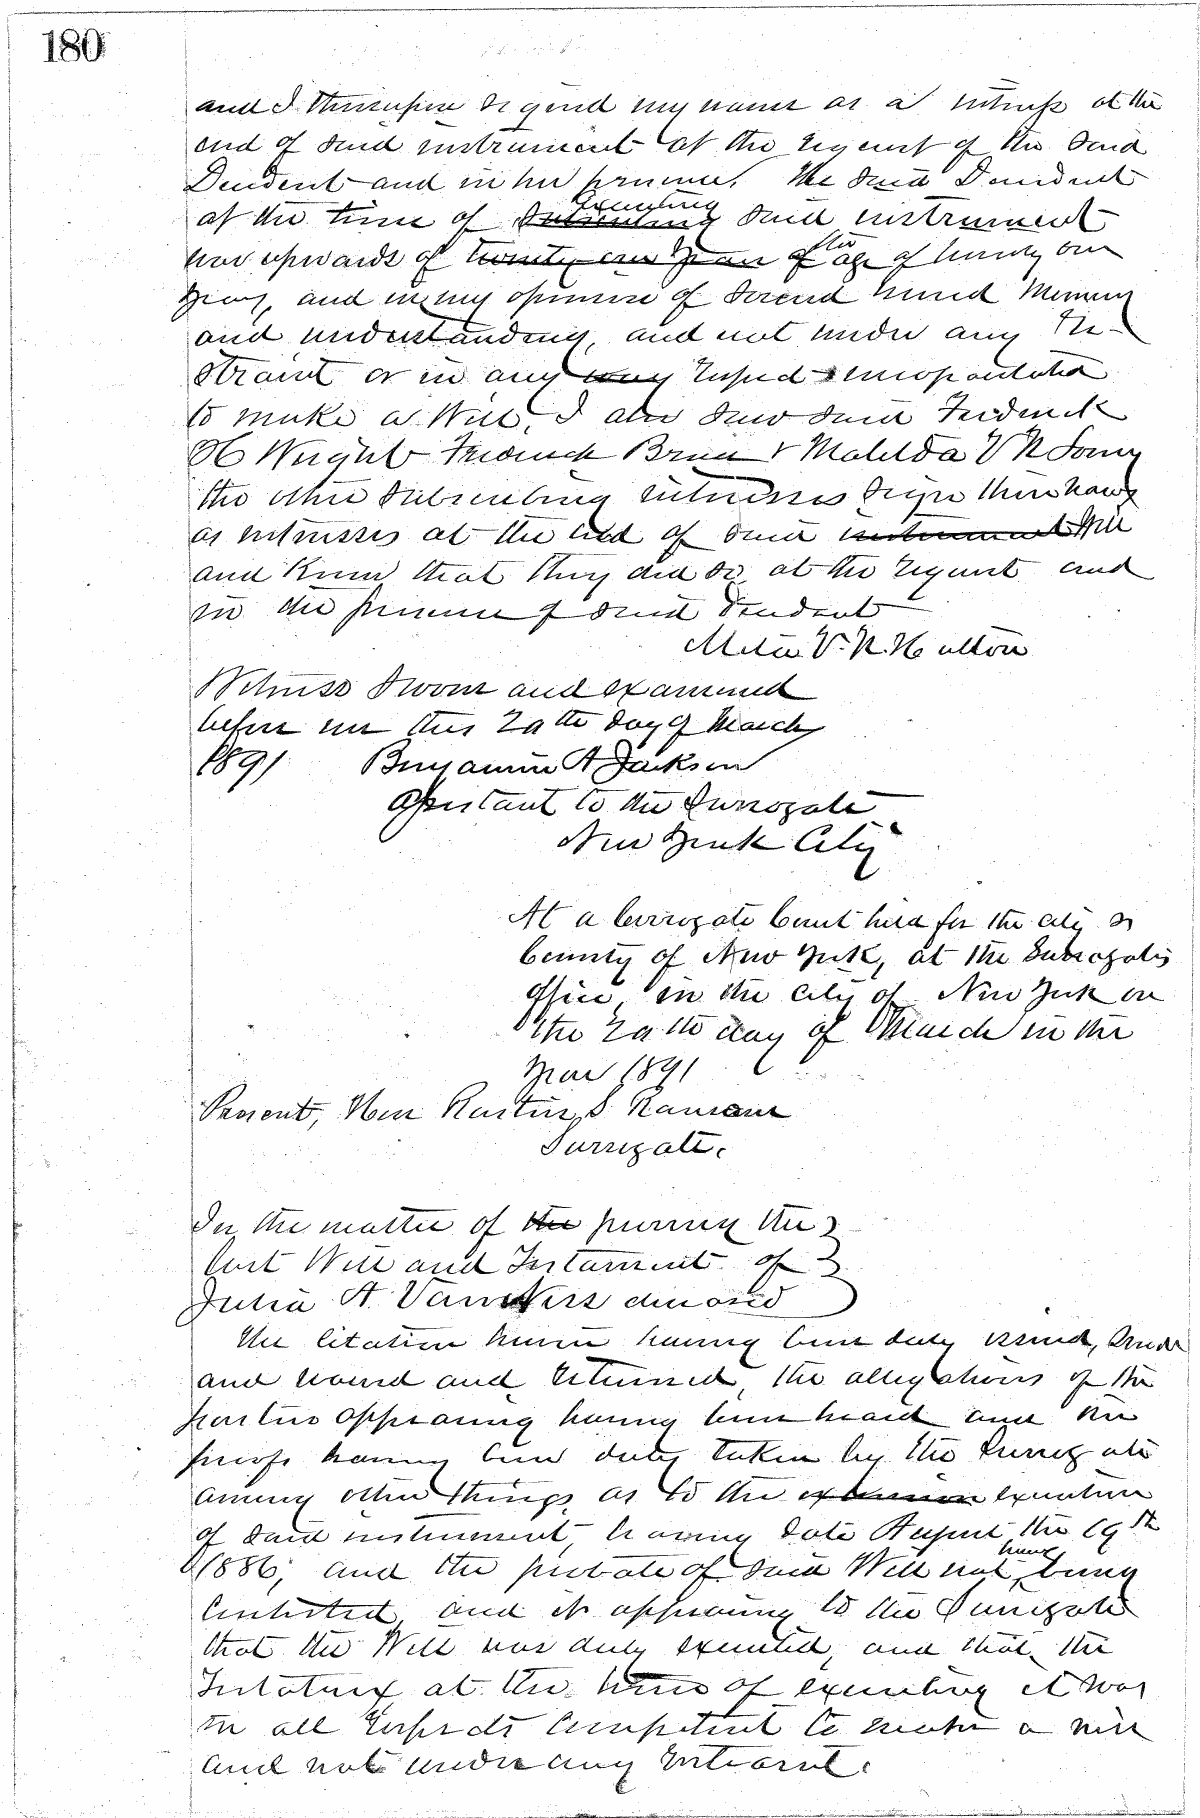 180
and I thereupon signed my name as a witness at the
end of said instrument at the request of the said
Decedent and in her presence. The said Decedent
executing
at the time of subscribing said instrument
the
was upwards of twenty one years of age of twenty one
years, and in my opinion of sound mind memory
and understanding, and not under any re-
straint or in any way respect incompetent
to make a Will, I also saw said Frederick
H Wright Frederick & Matilda V N
the other subscribing witnesses sign their names
as witnesses at the end of said instrument Will
and know that they did so at the request and
in the presence of said decedent
V. N. Hutton
Witness sworn and examined
before me this 20th day of March
1891 Benjamin A Jackson
Assistant to the Surrogate
New York City
At a Surrogate Court held for the city &
County of New York, at the Surrogates
office, in the City of New York on
the 20th day of March in the
year 1891
Present, Hon Rastus S Ransom
Surrogate.
In the matter of the proving the
last Will and Testament of
Julia A. Van Ness deceased
The Citation herein having been duly issued, served
and returned, the allegations of the
parties appearing having been heard and the
proofs having been duly taken by the Surrogate
among other things as to the execution
of said instrument, having date August the 19th
have
1886, and the probate of said Will not being
Contested, and it appearing to the Surrogate
that the Will was duly executed, and that the
Testatrix at the time of executing it was
in all respects competent to make a will
and not under any restraint.